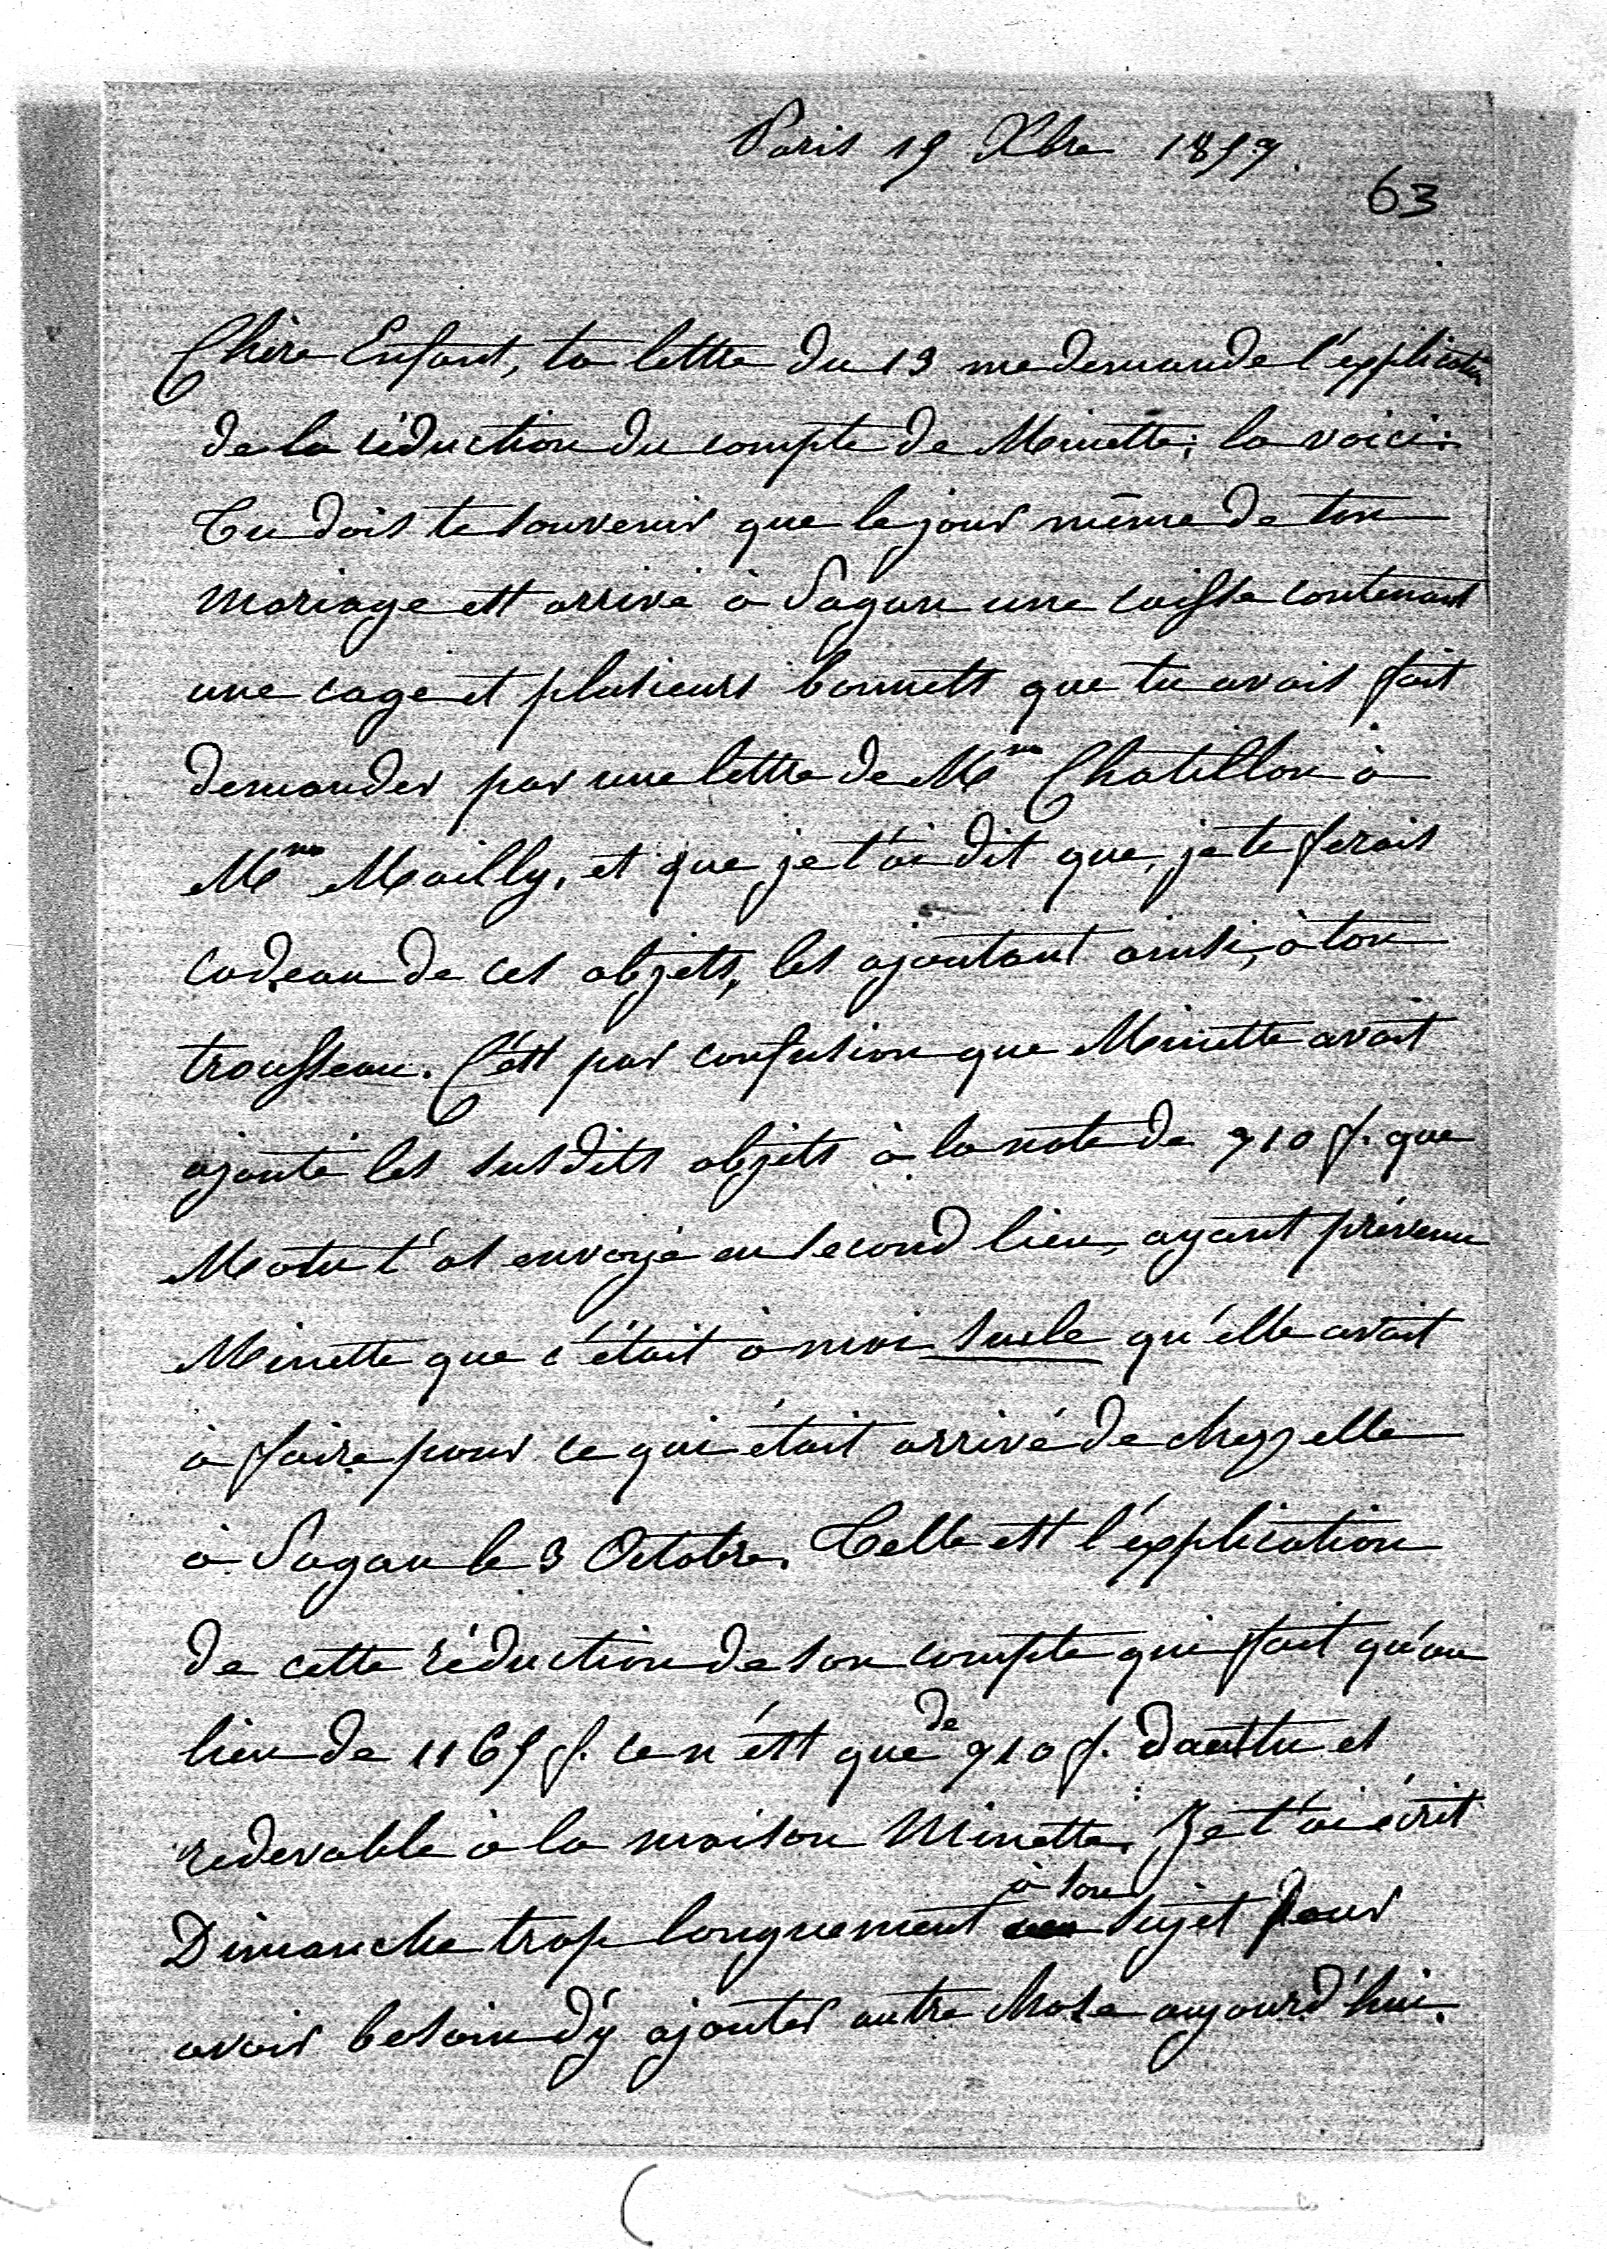 Paris 15 Xbre 1857.
63
Chère Enfant, ta lettre du 13 me demande l'explication
de la réduction du compte de Minette; la voici:
Tu dois te souvenir que le jour même de ton
mariage est arrivé à Sagan une caisse contenant
une cage et plusieurs bonnets que tu avais fait
demander par une lettre de Mme Chatillon à
Mme Mailly, et que je t'ai dit que, je te ferais
cadeau de ces objets, les ajoutant ainsi, à ton
trousseau. C'est par confusion que Minette avait
ajouté les susdits objets à la note de 910 f. que
t'as envoyé en second lieu, ayant prévenu
Minette que c'était à moi seule qu'elle avait
à faire pour ce qui était arrivé de chez elle
à Sagan le 3 Octobre. Telle est l'éxplication
de cette réduction de son compte qui fait qu'au
lieu de 1165 f. ce n'ést que de 910 f. dont tu es
redevable à la maison Minette. Je t'ai écrit
Dimanche trop longuement à son sujet pour
avoir besoin d'y ajouter autre chose aujourd'hui.